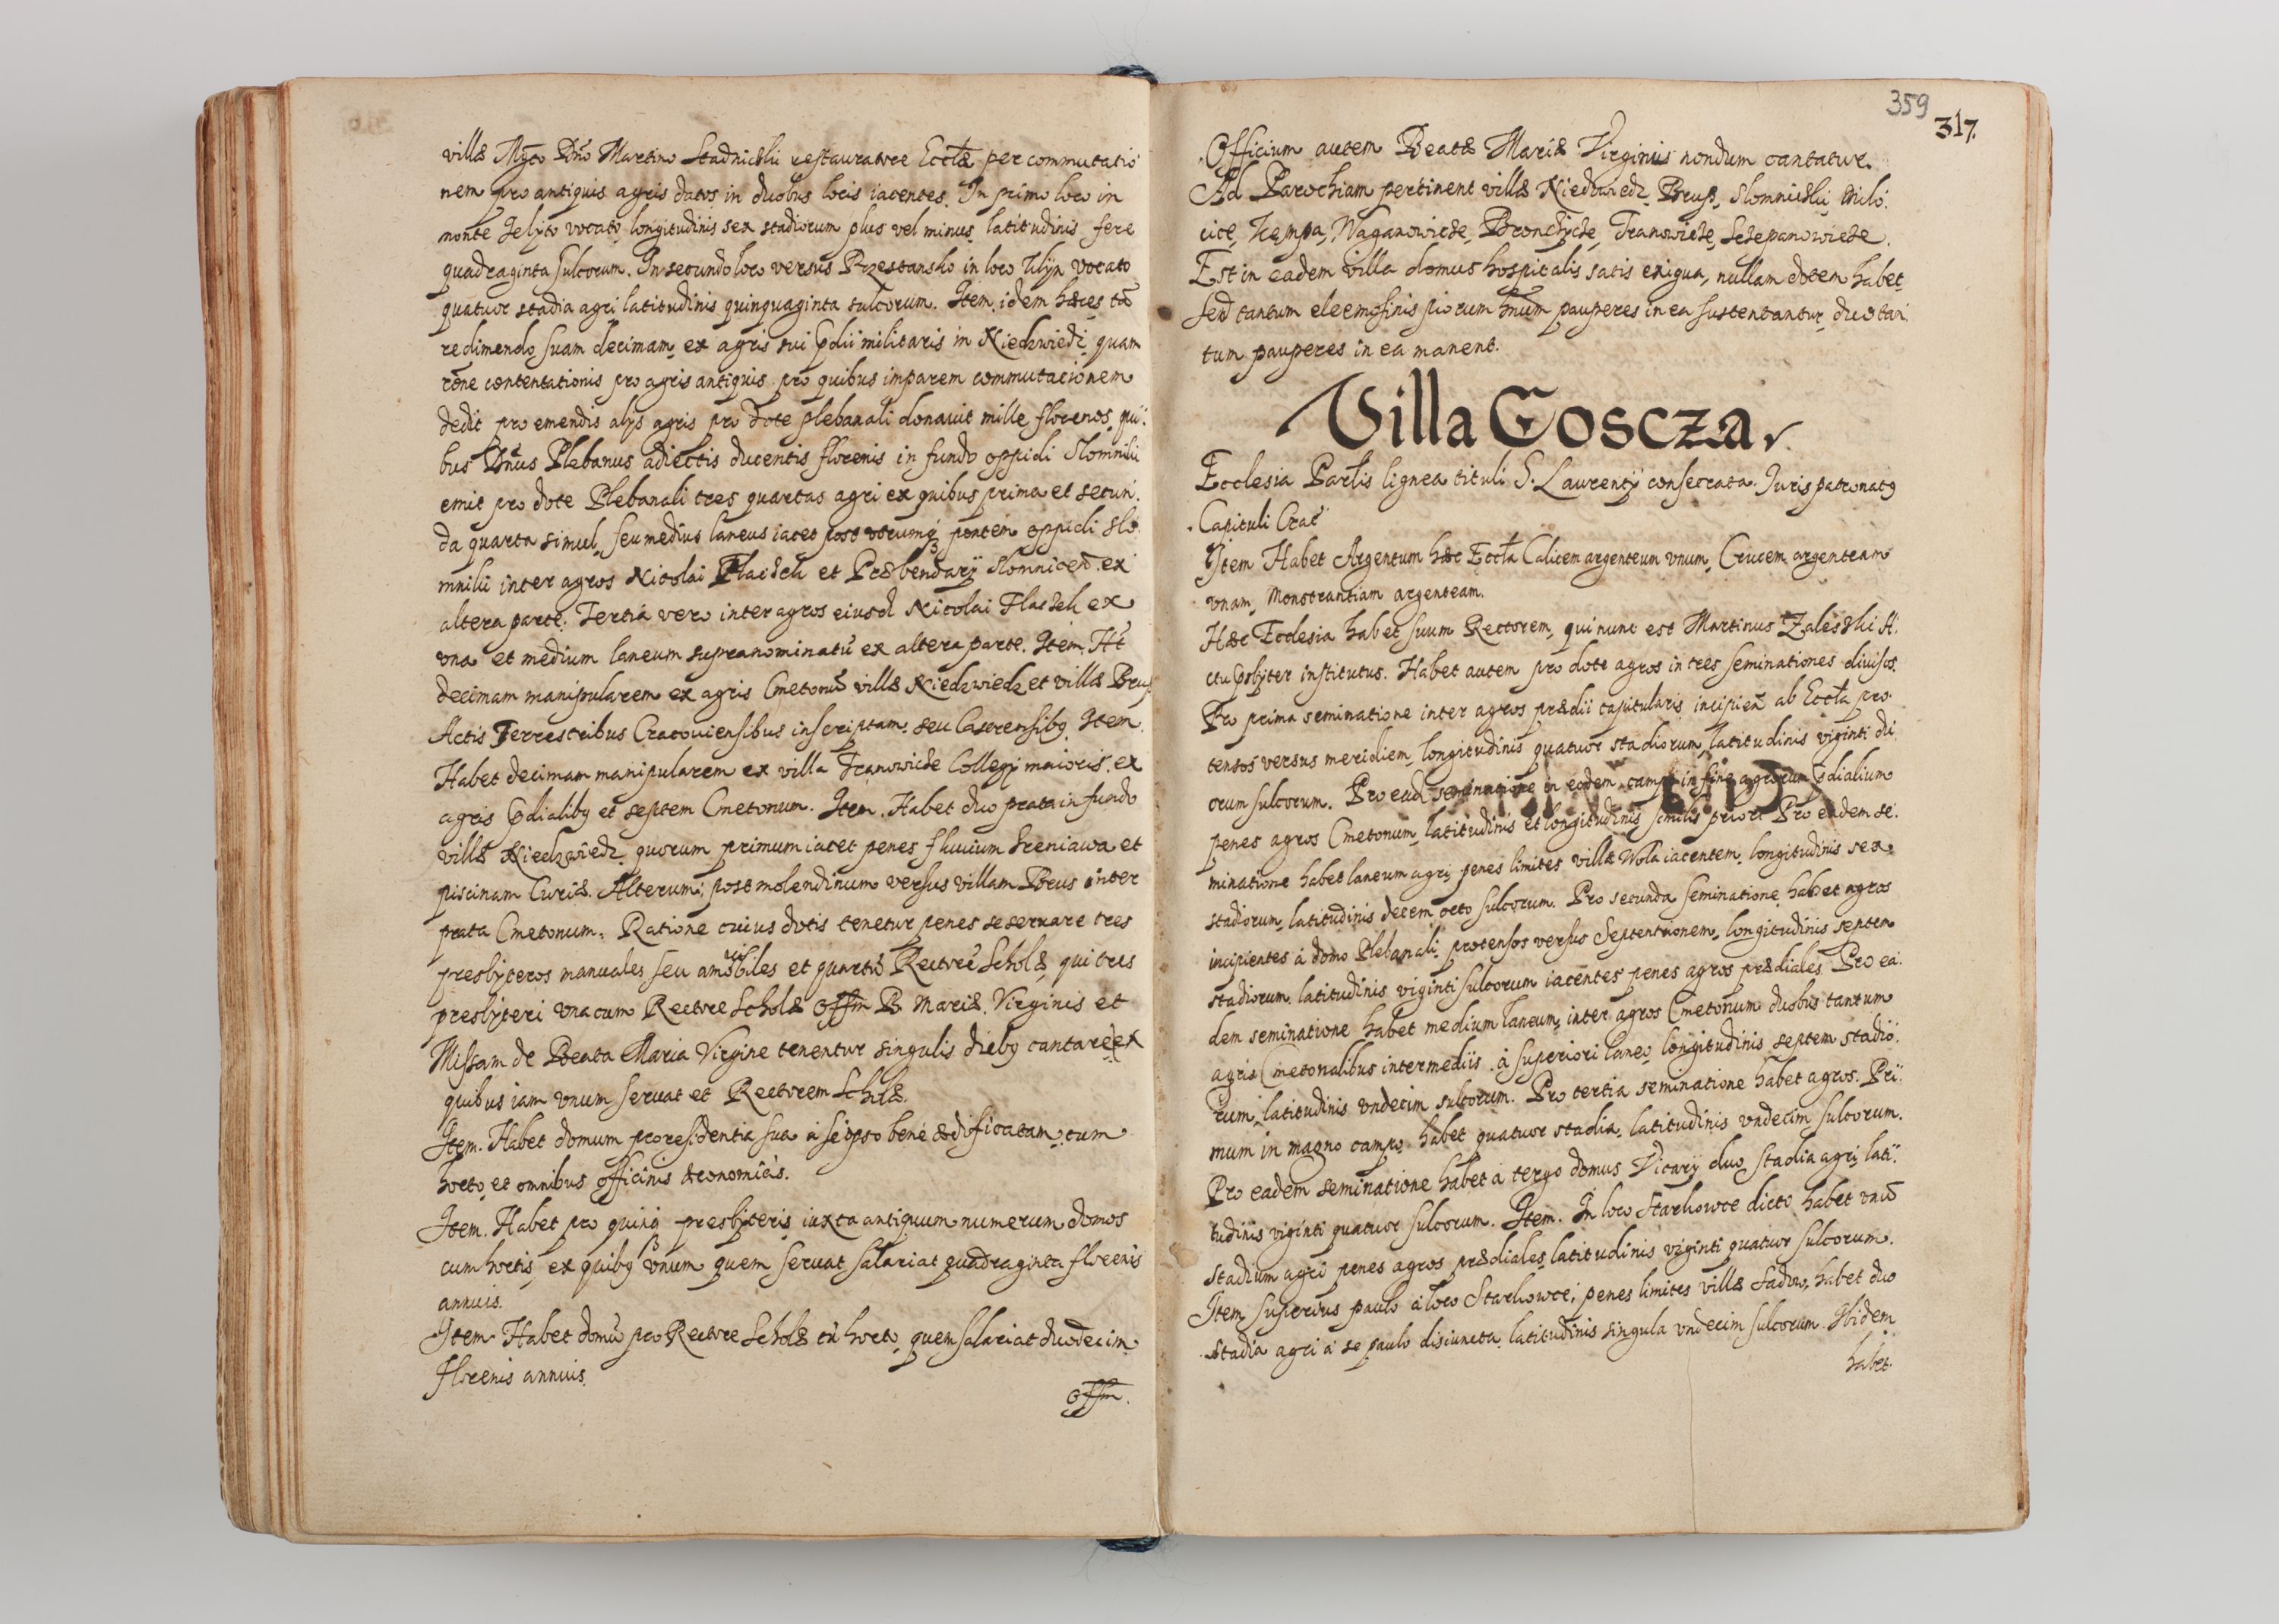 villæ Mgco Dno Martino Stadnicski restauratore Eccłæ per commutatio
nem pro antiquis agris datos in duobus locis iacentes. In primo loco in
monte Jelyto vocato, longitudinis sex stadiorum plus vel minus, latitudinis fere
quadraginta sulcorum. In secundo loco versus Przestansko in loco Klÿn vocato
quatuor stadia agri latitudinis quinquaginta sulcorum. Item idem hæres tã
redimendo suam decimam, ex agris sui pdii militaris in Niedzwiedz, quam
rõne contentationis pro agris antiquis pro quibus imparem commutacionem
dedit pro emendis alÿs agris pro dote plebanali donauit mille florenos, qui
bus Dnus Plebanus adiectis ducentis florenis in fundo oppidi Slomniki
emit pro dote Plebanali tres quartas agri ex quibus prima et secun
da quarta simul, seu medius laneus iacet post vtrumq pontem oppidi Slo
mniki inter agros Nicolai Flaczek et Præbendarÿ Slomnicen ex
altera parte. Tertia vero inter agros eiusd Nicolai Flaczek ex
vna et medium laneum supranominatũ ex altera parte. Item. Ht
decimam manipularem ex agris Cmetonũ villæ Niedzwiedz et villæ Brus
Actis Terrestribus Cracouiensibus inscriptam seu Castrensibq. Item.
Habet decimam manipularem ex villa Tranowicze Collegÿ maioris, ex
agris pdialibq et septem Cmetonum. Item. Habet duo prata in fundo
villæ Niedzwiedz, quorum primum iacet penes fluuium Sreniawa et
piscinam Curiæ. Alterum post molendinum versus villam Brus inter
prata Cmetonum. Ratione cuius dotis tenetur penes se seruare tres
presbyteros manuales seu amouibiles et quartũ Rectorẽ Scholæ, qui tres
presbyteri vna cum Rectore Scholæ Offm B. Mariæ Virginis et
Missam de Beata Maria Virgine tenentur singulis diebq cantare, ex
quibus iam vnum seruat et Rectorem Scholæ.
Item. Habet domum pro residentia sua a seipso bene ædificatam cum
horto, et omnibus officinis æconomicis.
Item. Habet pro quinq presbyteris iuxta antiquum numerum domos
cum hortis, ex quibq vnum quem seruat salariat quadraginta florenis
annuis.
Item Habet domũ pro Rectore Scholæ cũ horto, quem salariat duodecim
florenis annuis.
Offm.
359
317.
Officium autem Beatæ Mariæ Virginis nondum cantatur.
Ad Parochiam pertinent villæ Niedzwiedz, Brus, Slomniczki, Milo
cice, Kempa, Waganowicze, Bronczycze, Tranowicze, Sczepanowicze.
Est in eadem villa domus hospitalis satis exigua, nullam dotem habet,
sed tantum eleemosinis piorum hnum pauperes in ea sustentantur, duo tan
tum pauperes in ea manent.
Villa Goscza
Ecclesia Parłis lignea tituli S. Laurentÿ consecrata. Juris patronatq
Capituli Crac
Item Habet Argentum hæc Eccła Calicem argenteum vnum, Crucem argenteam
vnam, Monstrantiam argenteam.
Hæc Ecclesia habet suum Rectorem, qui nunc est Martinus Zaleski A
ctu psbÿter institutus. Habet autem pro dote agros in tres seminationes diuisos.
Pro prima seminatione inter agros prædii capitularis incipien ab Eccła pro
tensos versus meridiem, longitudinis quatuor stadiorum, latitudinis viginti du
orum sulcorum. Pro ead seminatione in eodem campo in fine agrorum pdialium
penes agros Cmetonum, latitudinis et longitudinis similis priori. Pro eadem se
minatione habet laneum agri penes limites villæ Wola iacentem, longitudinis sex
stadiorum, latitudinis decem octo sulcorum. Pro secunda seminatione habet agros
incipientes a domo Plebanali protensos versus Septentrionem, longitudinis septem
stadiorum latitudinis viginti sulcorum iacentes penes agros prædiales. Pro ea
dem seminatione habet medium laneum, inter agros Cmetonum duobus tantum
agris Cmetonalibus intermediis a superiori laneo, longitudinis septem stadio
rum, latitudinis vndecim sulcorum. Pro tertia seminatione habet agros. Pri
mum in magno campo habet quatuor stadia, latitudinis vndecim sulcorum.
Pro eadem seminatione habet a tergo domus Vicarÿ duo stadia agri lati
tudinis viginti quatuor sulcorum. Item. In loco Starkowce dicto habet vnũ
stadium agri penes agros prædiales, latitudinis viginti quatuor sulcorum.
Item superius paulo a loco Starkowce, penes limites villæ Sadow, habet duo
stadia agri a se paulo disiuncta, latitudinis singula vndecim sulcorum. Ibidem
habet.